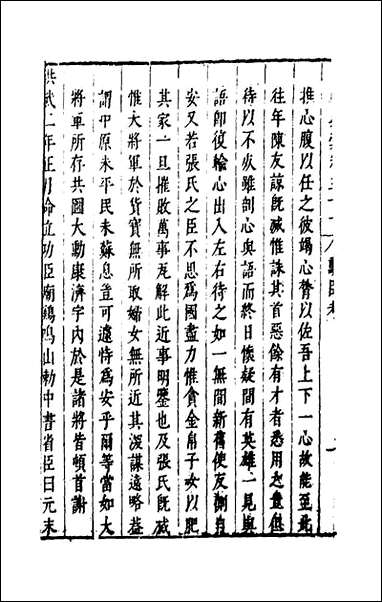 推心腹以任之彼竭心膂以佐吾上下一心故能至此
往年陳友諒旣滅惟誅其首惡餘有才者悉用之豈但
待以不次雖剖心與語而終日懷疑間有英雄一見與
語卽復輸心出入左右待之如一無間新舊使反側自
安又若張氏之臣不思爲國盡力惟貪金帛子女以肥
其家一旦摧敗萬事瓦解此近事明鑒也及張氏旣滅
惟大將軍於貨寶無所取婦女無所近其深謀遠略益
謂中原未平民未蘇息豈可遽恃爲安乎爾等當如大
將軍所存共圖大勳康濟宇內於是諸將皆頓首謝
洪武二年正月命立功臣廟雞鳴山勑中書省臣曰元末